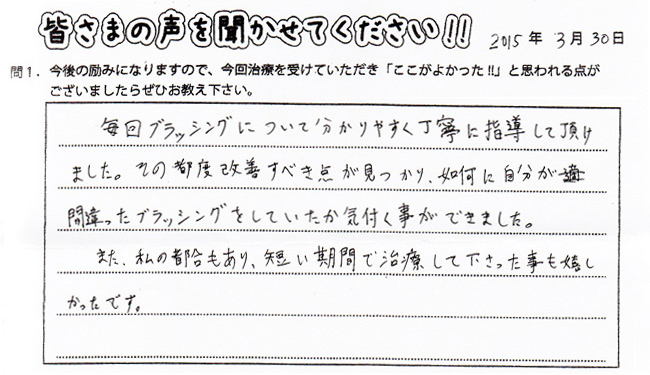 皆さまの声を聞かせてください!! 2015年 3月30日
問1．今後の励みになりますので、今回治療を受けていただき「ここがよかった!!」と思われる点が
ございましたらぜひお教え下さい。
毎回ブラッシングについて分かりやすく丁寧に指導して頂け
ました。その都度改善すべき点が見つかり、如何に自分が
間違ったブラッシングをしていたか気付く事ができました。
また、私の都合もあり、短い期間で治療して下さった事も嬉し
かったです。